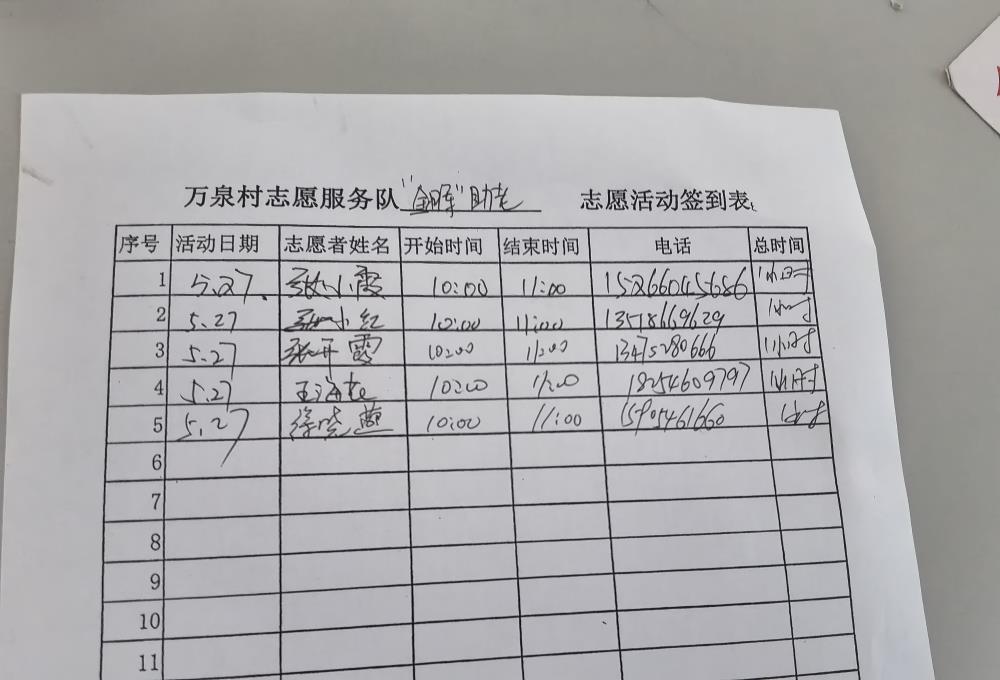 万泉村志愿服务队“金晖”助老 志愿活动签到表
序号 活动日期 志愿者姓名 开始时间 结束时间 电话 总时间
1 5.27. 张小霞 10:00 11:00 15266045686 1小时
2 5.27 张小红 10:00 11:00 13518669629 1小时
3 5.27 张开霞 10:00 11:00 13475280666 1小时
4 5.27 王海花 10:00 11:00 18254609797 1小时
5 5.27 徐晓燕 10:00 11:00 15905461660 1小时
6
7
8
9
10
11